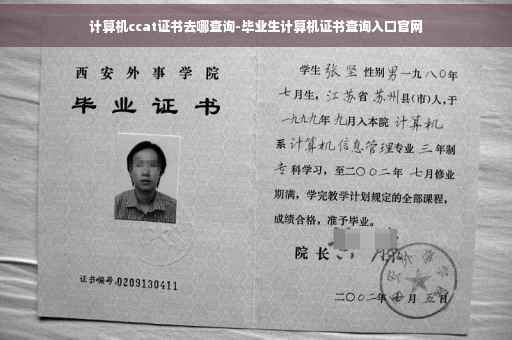 计算机ccat证书去哪查询-毕业生计算机证书查询入口官网
西安外事学院
毕业证书
证书编号:0209130411
学生 张坚 性别男一九八〇年
七月生，江苏省 苏州县(市)人，于
一九九九年 九月入本院 计算机
系 计算机信息管理专业 三 年制
专 科学习，至二〇〇二年 七月修业
期满，学完教学计划规定的全部课程，
成绩合格，准予毕业。
院 长
二〇〇二年 月 五 日